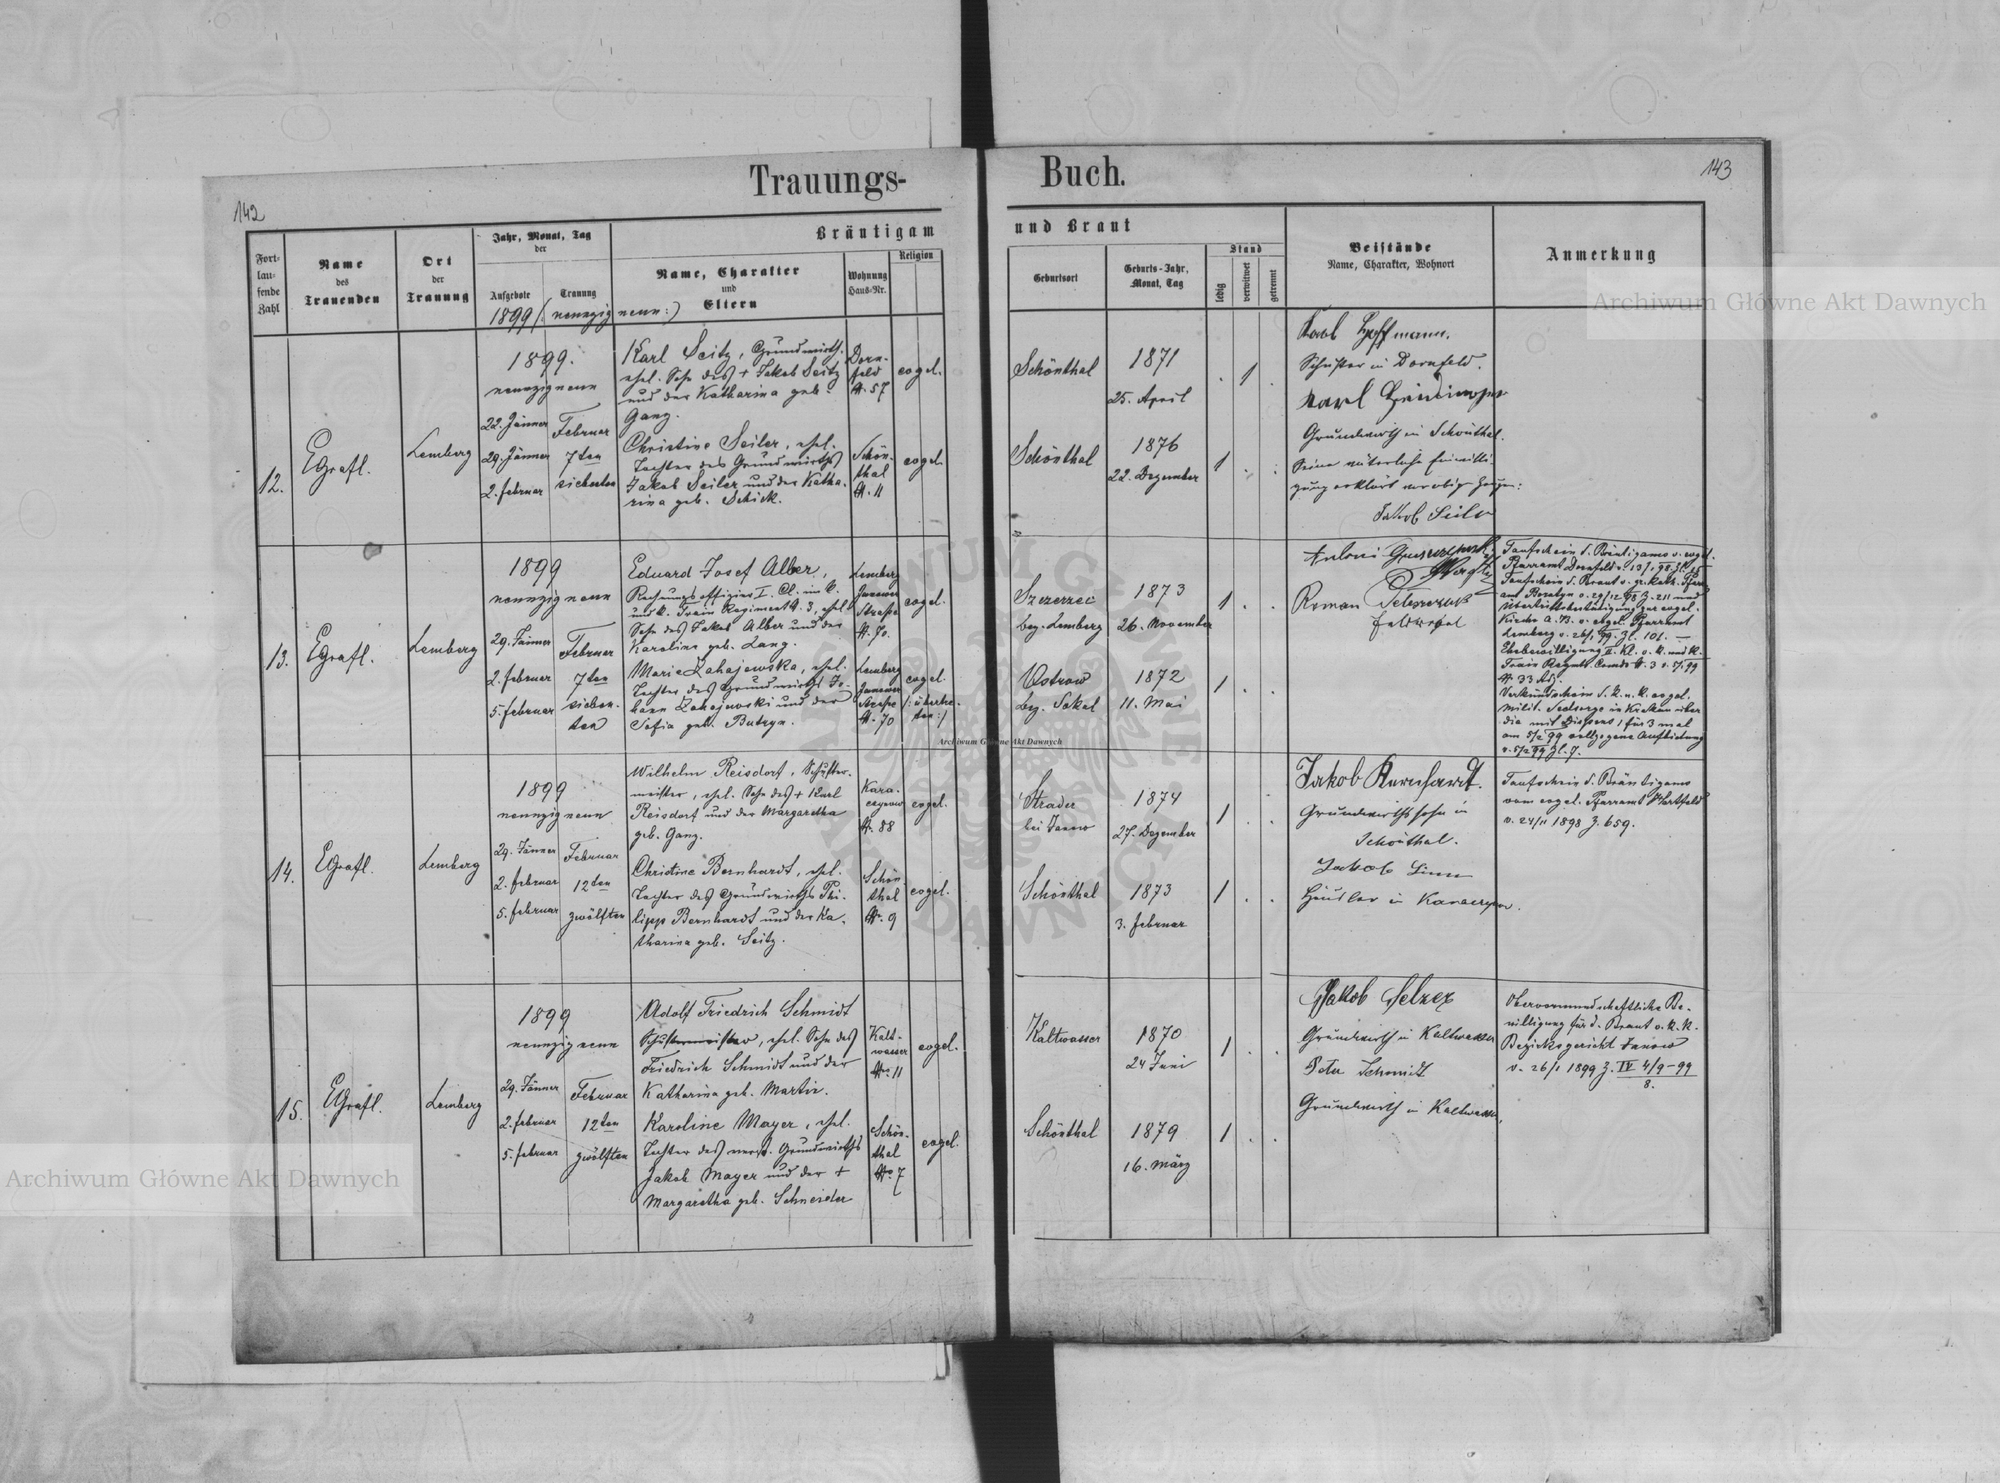 Trauungs-
Buch.
142
143
Fort-
lau-
fende
Zahl
Name
des
Trauenden
Ort
der
Trauung
Jahr, Monat, Tag
der
Aufgebote
Trauung
Bräutigam
Name, Charakter
und
Eltern
Wohnung
Haus-Nr.
Religion
und Braut
Geburtsort
Geburts-Jahr,
Monat, Tag
Stand
ledig
verwitwet
getrennt
Beistände
Name, Charakter, Wohnort
Anmerkung
1899 (:neunzig neun:)
12.
EGrafl.
Lemberg
1899.
neunzig neun
22. Jänner
29. Jänner
2. Februar
Februar
7ten
siebenten
Karl Seitz, Grundwirth,
ehel. Sohn des + Jakob Seitz
und der Katharina geb.
Ganz.
Dorn-
feld
Nr. 57
evgel.
Christine Seiler, ehel.
Tochter des Grundwirths
Jakob Seiler und der Katha-
rina geb. Schick.
Schön-
thal
Nr. 11
evgel.
Schönthal
1871
25. April
1
Schönthal
1876
22. Dezember
1
Karl Hoffmann.
Schuster in Dornfeld.
Karl
Grundwirth in Schönthal.
Seine väterliche Einwilli-
gung erklärt vor obigen Zeugen:
Jakob Seiler
13.
EGrafl.
Lemberg
1899
neunzig neun
29. Jänner
2. Februar
5. Februar
Februar
7ten
sieben-
ten
Eduard Josef Alber,
Rechnungsoffizier I. Cl. im k.
und k. Train Regiment Nr. 3, ehel.
Sohn des Jakob Alber und der
Karoline geb. Lang.
Lemberg
Janower
Straße
Nr. 70.
evgel.
Marie Zahajewska, ehel.
Tochter des Grundwirths Jo-
hann Zahajewski und der
Sofia geb. Butryn.
Lemberg
Janower
Straße
Nr. 70
evgel.
(:übertre-
ten:)
Szczerzec
bez. Lemberg
1873
26. November
1
Ostrow
bez. Sokal
1872
11. Mai
1
Antoni
Roman
Feldwebel
Taufschein d. Bräutigams v. evgel.
Pfarramt Dornfeld v. 13/1 98 Zl. 25
Taufschein d. Braut v. gr. kath. Pfarr-
amt v. 29/12 98 Z. 211 und
Übertrittsbestätigung zur evgel.
Kirche A. B. v. evgel. Pfarramt
Lemberg v. 26/1 99. Zl. 101. —
Ehebewilligung II. Kl. v. k. und k.
Train Regmts Comdo Nr. 3 v. 5/1 99
Nr. 33 Adj.
Verkündschein d. k. u. k. evgel.
Milit. Seelsorge in Krakau über
die mit Dispens, für 3 mal
am 5/2 99 vollzogene Aufbietung
v. 5/2 99 Zl. 7.
14.
EGrafl.
Lemberg
1899
neunzig neun
29. Jänner
2. Februar
5. Februar
Februar
12ten
zwölften
Wilhelm Reisdorf, Schuster-
meister, ehel. Sohn des + Karl
Reisdorf und der Margaretha
geb. Ganz.
Kara-
czynow
Nr. 88
evgel.
Christine Bernhardt, ehel.
Tochter des Grundwirths Phi-
lipp Bernhardt und der Ka-
tharina geb. Seitz.
Schön
thal
Nr. 9
evgel.
Stradcz
bei Janow
1874
27. Dezember
1
Schönthal
1873
3. Februar
1
Jakob Bernhardt.
Grundwirthssohn in
Schönthal.
Jakob
Häusler in Karaczynow.
Taufschein d. Bräutigams
vom evgel. Pfarramt Hartfeld
v. 24/11 1898 Z. 659.
15.
EGrafl.
Lemberg
1899
neunzig neun
29. Jänner
2. Februar
5. Februar
Februar
12ten
zwölften
Adolf Friedrich Schmidt
Schustermeister, ehel. Sohn des
Friedrich Schmidt und der
Katharina geb. Martin.
Kalt-
wasser
Nr. 11
evgel.
Karoline Mayer, ehel.
Tochter des verst. Grundwirths
Jakob Mayer und der +
Margaretha geb. Schneider
Schön-
thal
Nr. 7
evgel.
Kaltwasser
1870
24 Juni
1
Schönthal
1879
16. März
1
Jakob Selzer
Grundwirth in Kaltwasser
Peter Schmidt
Grundwirth in Kaltwasser.
Obervormundschaftliche Be-
willigung für d. Braut v. k. k.
Bezirksgericht Janow
v. 26/1 1899 Z. IV 4/9-99
8.
Archiwum Główne Akt Dawnych
Archiwum Główne Akt Dawnych
Archiwum Główne Akt Dawnych